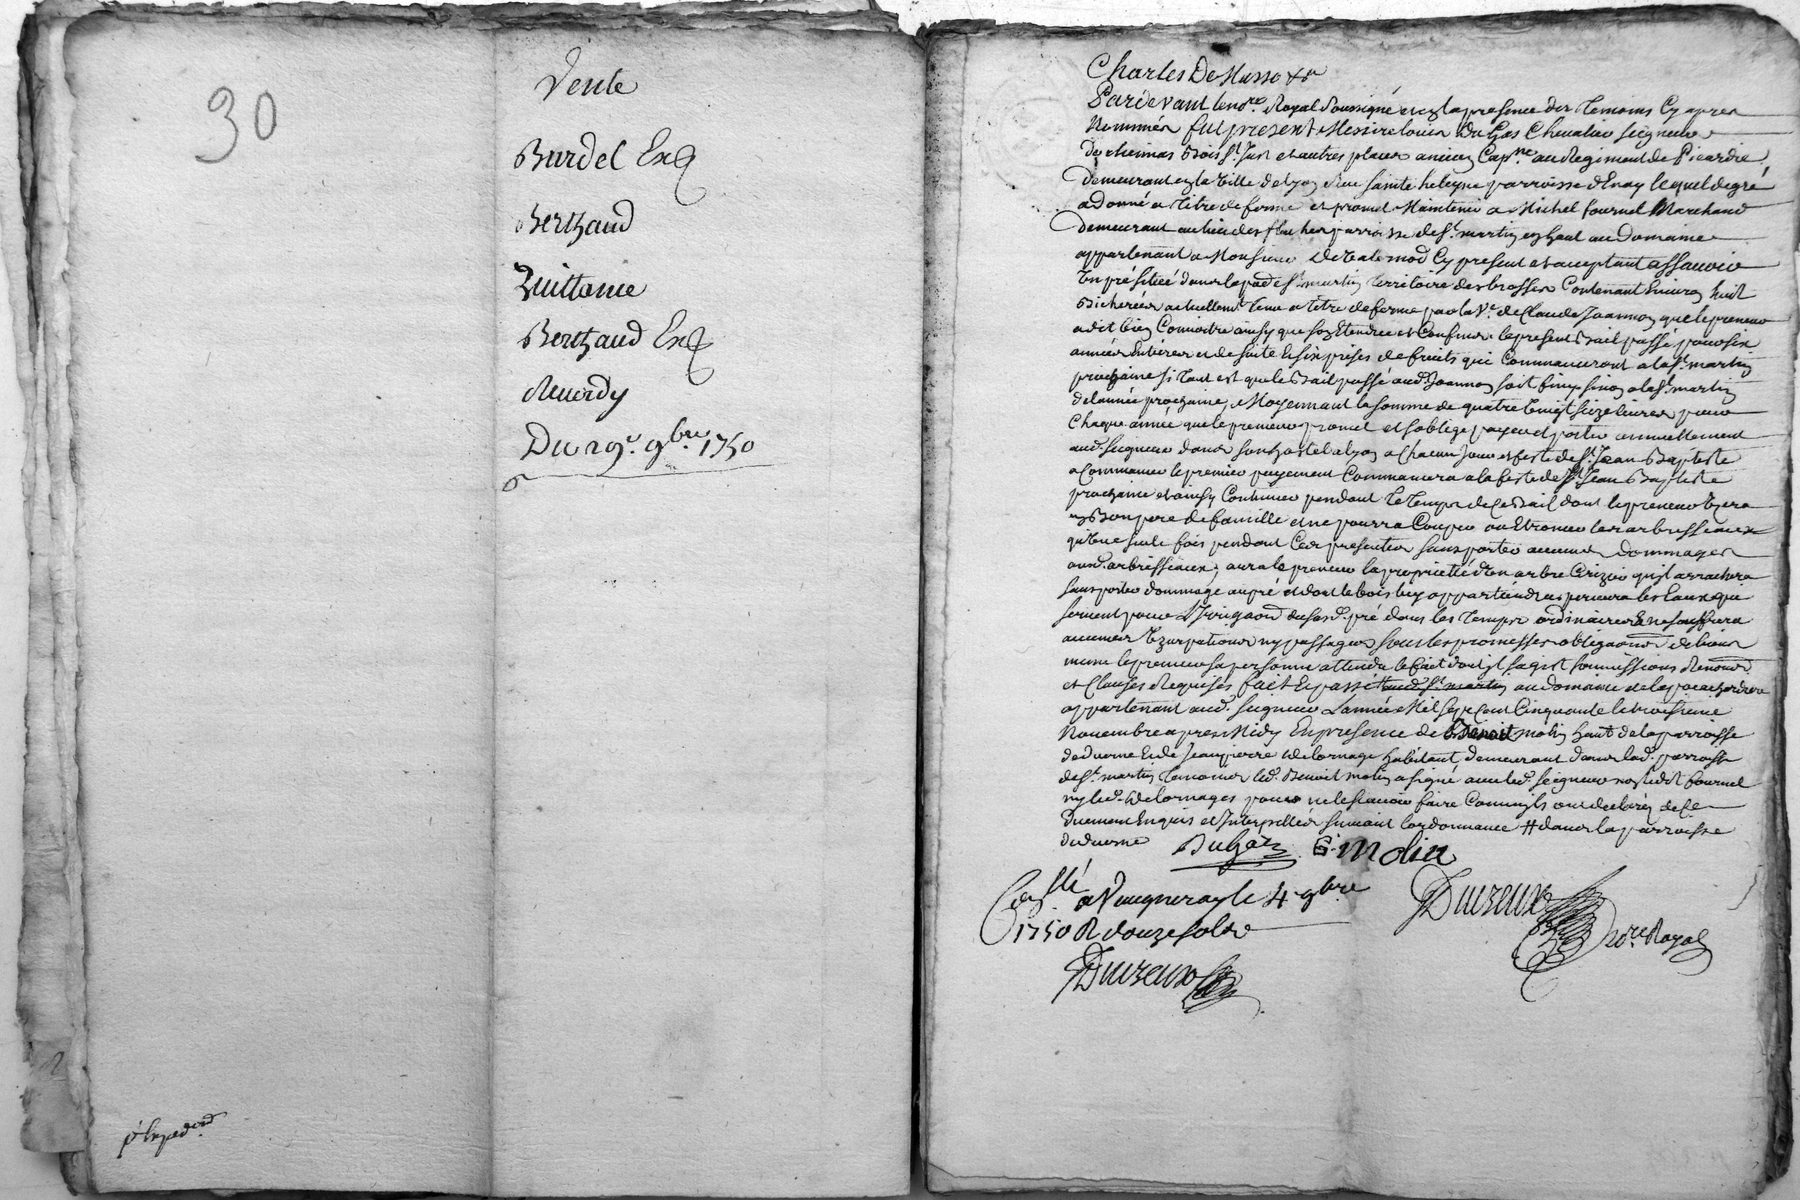 30
Vente
Burdel Exq
Berthaud
Quittance
Berthaud Exq
Reuerdy
Du 29e. 9bre. 1750
Charles De Masso &a
Pardevant le nore. Royal Soussigné et en la presence des Temoins Cy apres
Nommés fut present Messire Louis Du Gas Chevalier Seigneur
De Bois St. Just et autres places ancien Capne. au Regiment de Picardie,
Demeurant en la Ville de Lyon Rue Sainte heleyne parroisse d'Enay lequel de gré
a Donné a Titre de ferme et promet Maintenir a Michel fournel Marchand
Demeurant au lieu des parroisse de St. martin en haut au Domaine
appartenant a Monsieur Cy present et acceptant assauoir
Un pré situé dans lad. pade. St. martin Territoire des brosses Contenant Enuiron huit
Bicherées actuellemt. Tenu a titre de ferme par la Ve. de Claude Joannon que le preneur
a dit bien Connoitre ainsy que son Etendue et Confins. le present Bail passé pour six
années Entieres et de suitte & six prises de fruits qui Commanceront a la St. martin
prochaine si tant est que le Bail passé aud. Joannon soit finy sinon a la St. martin
de l'année prochaine, Moyennant la somme de quatre Vingt seize liures pour
Chaque année que le preneur promet et s'oblige payer et porter annuellement
aud. Seigneur dans son hostel a Lyon a Chacun Jour et feste de St. Jean Baptiste
a Commancer le premier payement Commancera a la feste de St. Jean Baptiste
prochaine et ainsy Continuer pendant le Temps de Ce Bail dont le preneur Uzera
en Bon pere de famille et ne pourra Couper ou Etronner les arbrisseaux
qu'une seule fois pendant Ces presentes sans porter aucuns Dommages
auxd. arbrisseaux; aura le preneur la proprietté d'Un arbre Cerizier qu'il arrachera
sans porter dommage au pré et dont le bois luy appartiendra les Eaux que
seruent pour L'Irrigaon dud. pré dans les Temps ordinaires & ne souffrira
aucunes Uzurpations ny passages sous les promesses obligaons de biens
meme le preneur sa personne attendu le fait dont il s'agist soumissions Renonons
et Clauses Requises fait & passé aud. St. martin au domaine de la
appartenant aud. Seigneur L'année Mil Sept Cent Cinquante le troisieme
Nouembre apres Midy En presence de Benoit molin haut de la parroisse
de duerne & de Jean pierre Delornage habitant, demeurant dans lad. parroisse
de St. martin Temoins led. Benoit molin a signé auec led. Seigneur non led. fournel
ny led. Delornages pour ne le scauoir faire Comme ils ont declaré de Ce
Duement Enquis et Interpellés suiuant l'ordonnance # dans la parroisse
de duerne Dugas B. Molin
Conllé a Vaugneray le 4 9bre
1750 R douze sols
Duizeux
Duizeux nore. Royal